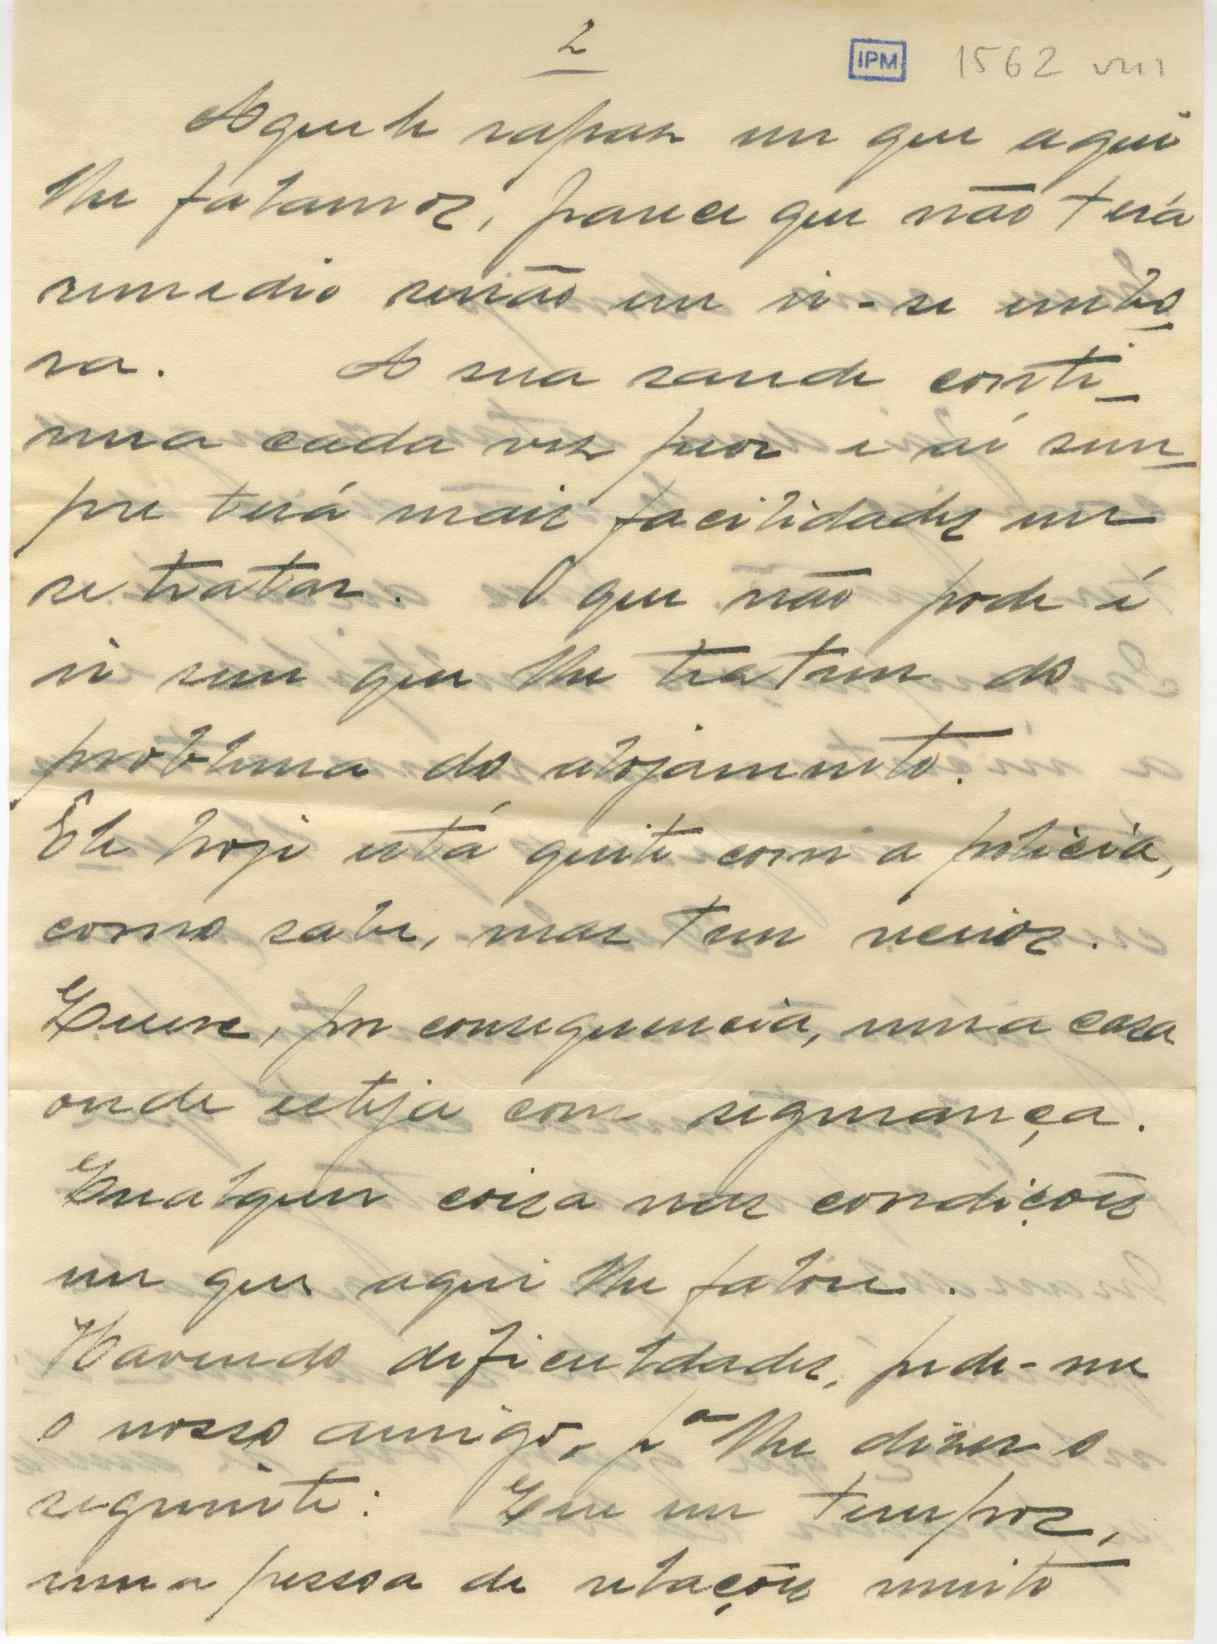 2
IPM 1562 VIII
Aquele rapaz em que aqui
lhe falamos, parece que não terá
remedio senão em ir-se embo-
ra. A sua saude conti-
nua cada vez peor e aí sem-
pre terá mais facilidades em
se tratar. O que não pode é
ir sem que lhe tratem do
problema do alojamento.
Ele hoje está quite com a policia,
como sabe, mas tem receios.
Quere, por consequencia, uma casa
onde esteja com segurança.
Qualquer coisa nas condições
em que aqui lhe falou.
Havendo dificuldades, pede-me
o nosso amigo, pª lhe dizer o
seguinte: Que em tempos,
uma pessoa de relações muito